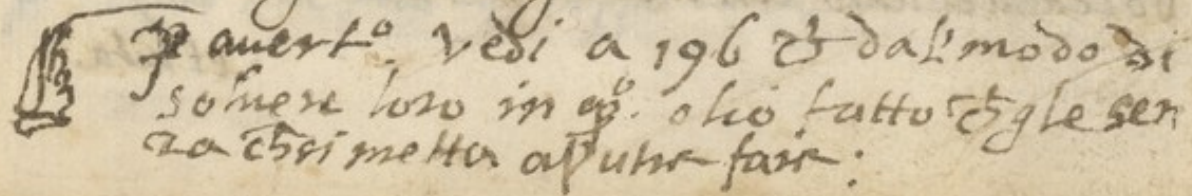 P avert.º Vedi a 196 & da l' modo di
solvere loro in q.º olio fatto ch gle sen
za ch si metta a putrefare: